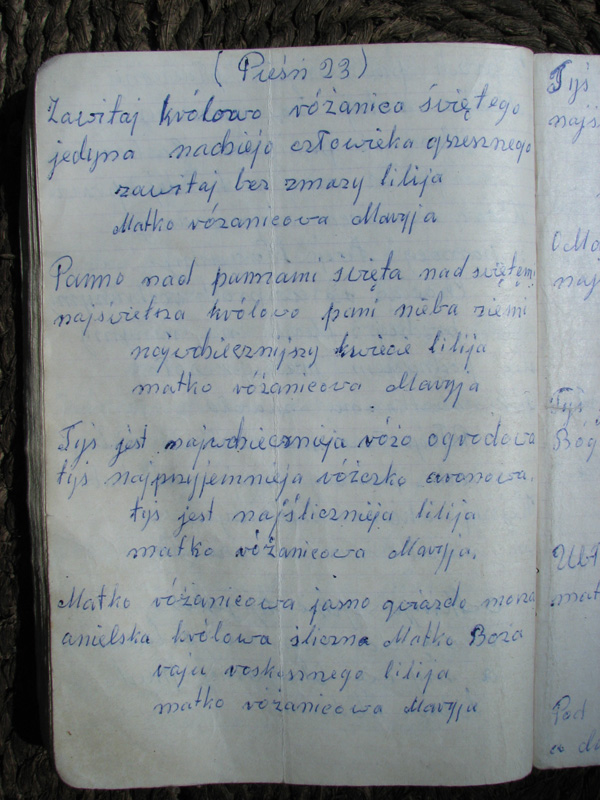 (Pieśń 23)
Zawitaj królowo różańca świętego
jedyna nadziejo człowieka grzesznego
zawitaj bez zmazy lilija
Matko różańcowa Maryja
Panno nad pannami święta nad świętemi
najświetsza królowo pani nieba ziemi
najwdzięcznijszy kwiecie lilija
matko różańcowa Maryja
Tyś jest najwdzięcznieja różo ogrodowa
tyś najprzyjemnieja różczko aronowa.
tyś jest najśliczniejа lilija
matko różańcowa Maryja.
Matko różańcowa jasno gwiazdo morza
anielska królowa śliczna Matko Boża
raja roskosznego lilija
matko różańcowa Maryja
Tyś
najś
O Ma
naj
Tyś
Bóg
mat
Pod
co do